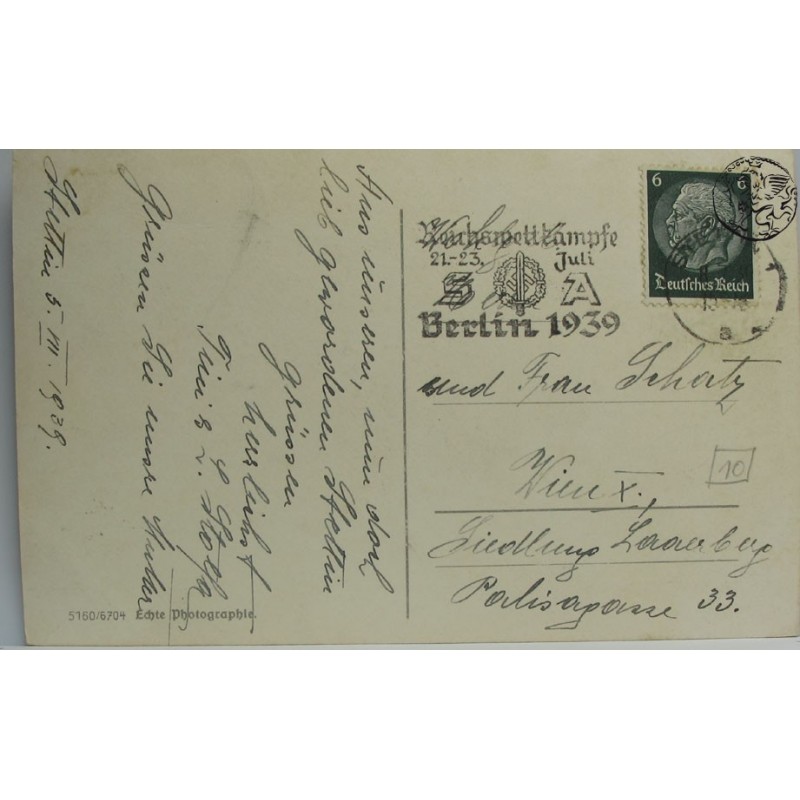 Stettin 5. VII. 1939.
Aus unserem, nun doch
lieb gewordenen Stettin
grüssen
herzlichst
Grüssen Sie unsre
Reichswettkämpfe
21.-23. Juli
S A
Berlin 1939
6 6
Deutsches Reich
und Frau Schatz
Wien X.,
Siedlung Laaerberg
Palisagasse 33.
10
5160/6704 Echte Photographie.